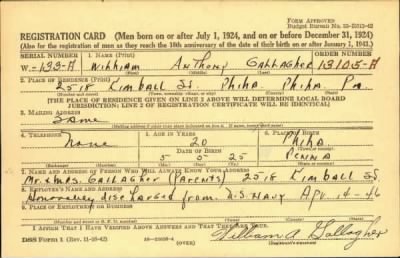 FORM APPROVED
Budget Bureau No. 33-R012-42
REGISTRATION CARD (Men born on or after July 1, 1924, and on or before December 31, 1924)
(Also for the registration of men as they reach the 18th anniversary of the date of their birth on or after January 1, 1943.)
SERIAL NUMBER 1. NAME (Print) ORDER NUMBER
W-133-A William Anthony Gallagher 13105-A
(First) (Middle) (Last)
2. PLACE OF RESIDENCE (Print)
2518 Kimball St. Phila. Phila. Pa.
(Number and street) (Town, township, village, or city) (County) (State)
[THE PLACE OF RESIDENCE GIVEN ON LINE 2 ABOVE WILL DETERMINE LOCAL BOARD
JURISDICTION; LINE 2 OF REGISTRATION CERTIFICATE WILL BE IDENTICAL]
3. MAILING ADDRESS
Same
4. TELEPHONE 5. AGE IN YEARS 6. PLACE OF BIRTH
None 20 Phila
DATE OF BIRTH
5 5 25 Penna
(Exchange) (Number) (Mo.) (Day) (Yr.) (State or country)
7. NAME AND ADDRESS OF PERSON WHO WILL ALWAYS KNOW YOUR ADDRESS
Mr. & Mrs. Gallagher (Parents) 2518 Kimball St
8. EMPLOYER'S NAME AND ADDRESS
Honorably discharged from U.S. Navy Apr. 14-46
9. PLACE OF EMPLOYMENT OR BUSINESS
(Number and street or R. F. D. number) (Town) (County) (State)
I AFFIRM THAT I HAVE VERIFIED ABOVE ANSWERS AND THAT THEY ARE TRUE.
William A Gallagher
DSS Form 1 (Rev. 11-16-42) (OVER) (Registrant's signature)